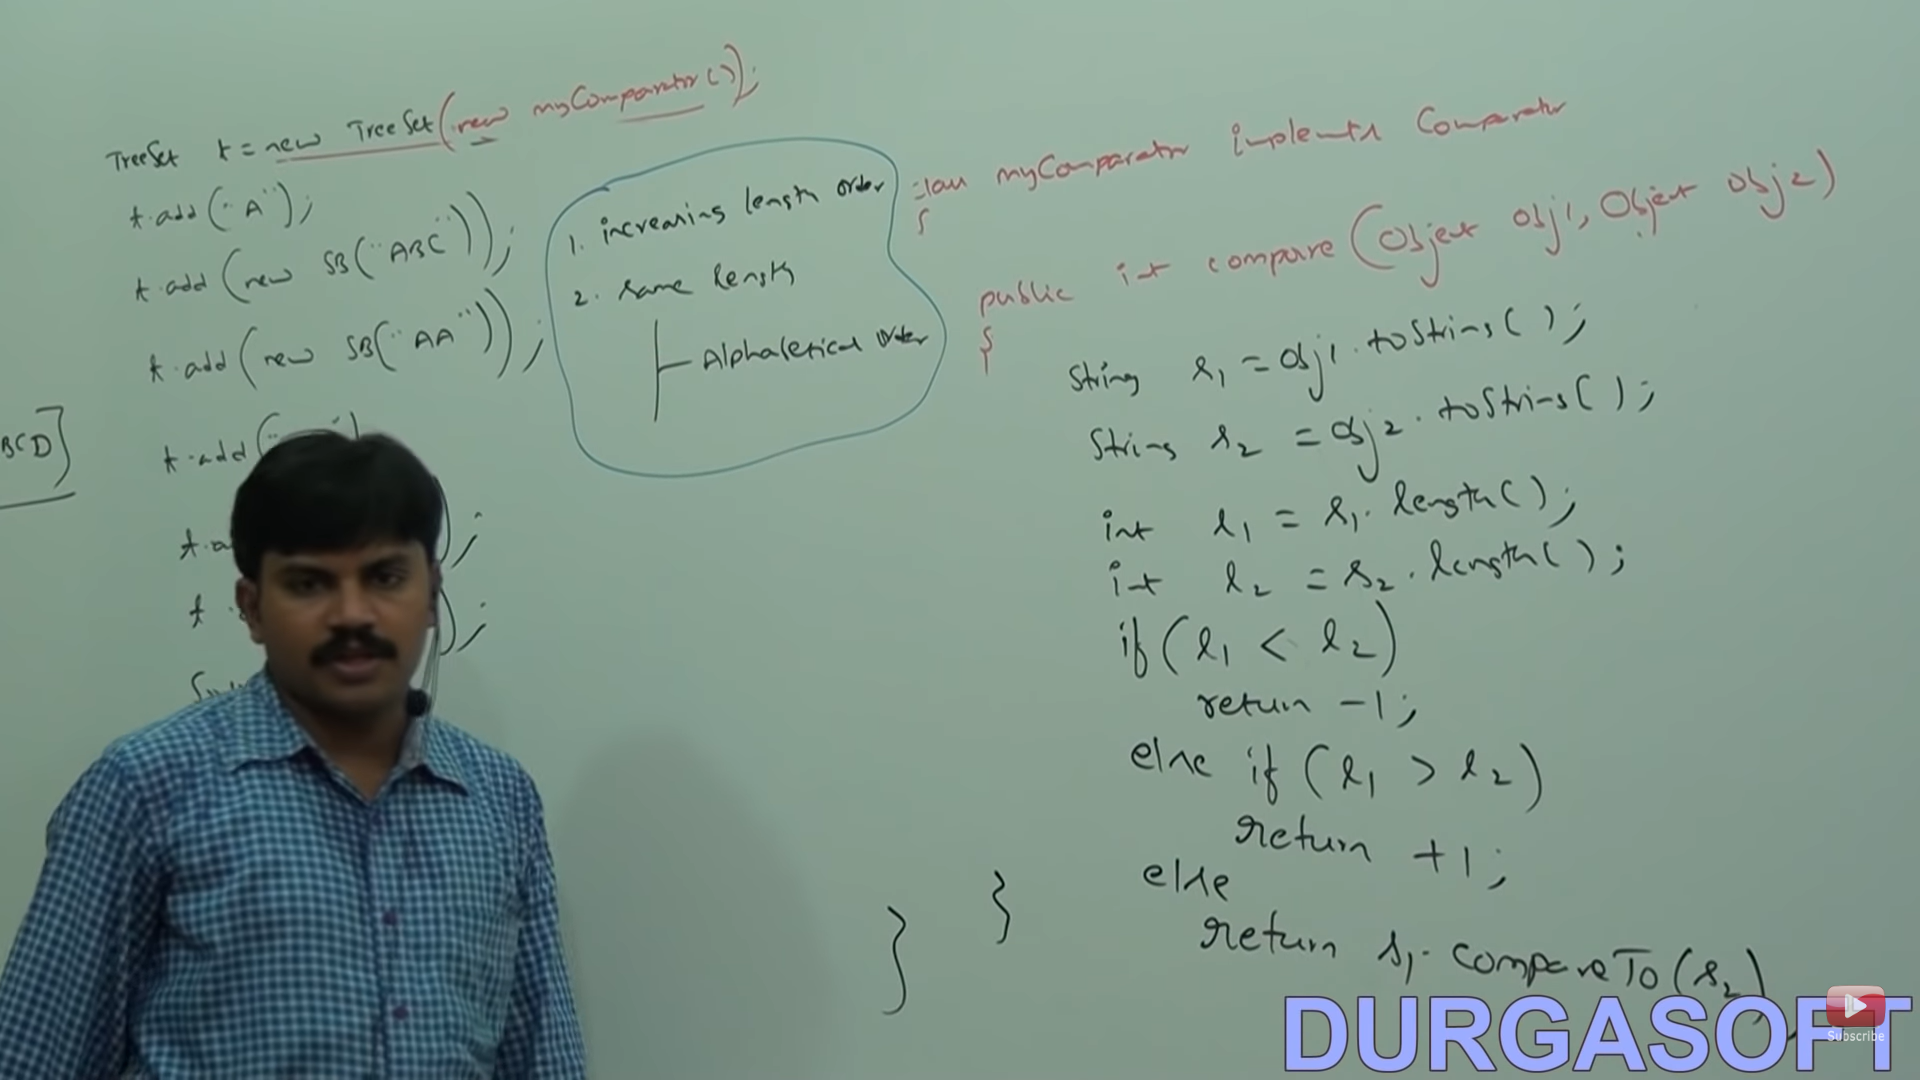 TreeSet t = new TreeSet(new myComparator());
t.add("A");
t.add(new SB("ABC"));
t.add(new SB("AA"));
t.add("
t.a );
t. );
BCD]
1. increasing length order
2. same length
Alphabetical order
class myComparator implements Comparator
{
public int compare(Object obj1, Object obj2)
{
String s1 = obj1.toString();
String s2 = obj2.toString();
int l1 = s1.length();
int l2 = s2.length();
if(l1 < l2)
return -1;
else if(l1 > l2)
return +1;
else
return s1.compareTo(s2)
}
}
DURGASOFT
Subscribe